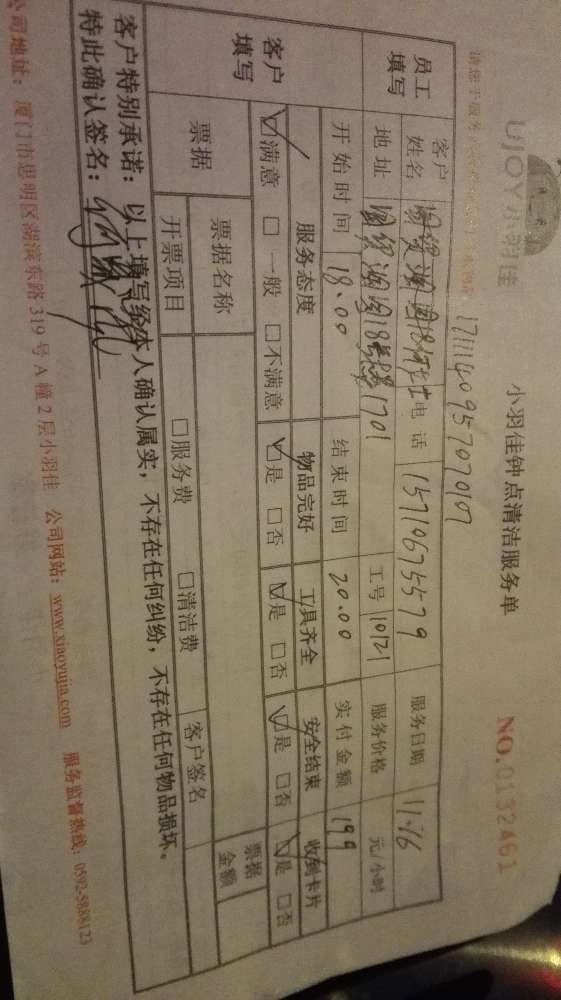 UJOY小羽佳
小羽佳钟点清洁服务单
NO.0132461
请您于服务
1711140957070107
员工填写
客户姓名
电话 15710675579
服务日期 11.16
地址 1701
工号 10121
服务价格 元/小时
开始时间 18.00
结束时间 20.00
实付金额 199
客户填写
服务态度 物品完好 工具齐全 安全结束 收到卡片
☑满意 □一般 □不满意 ☑是 □否 ☑是 □否 ☑是 □否 ☑是 □否
票据
票据名称
票据金额
开票项目 □服务费 □清洁费 客户签名
客户特别承诺：以上填写经本人确认属实，不存在任何纠纷，不存在任何物品损坏。
特此确认签名：
公司地址：厦门市思明区湖滨东路319号A幢2层小羽佳 公司网站：www.xiaoyujia.com 服务监督热线：0592-5888123